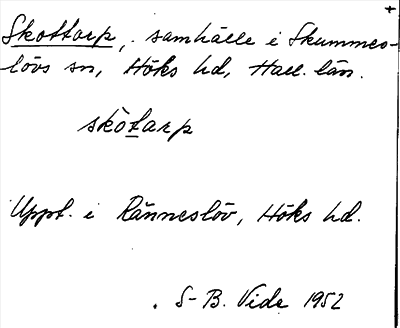 Skottarp, samhälle i Skummes-
lövs sn, Höks hd, Hall. län.
skòtarp
Uppt. i Ränneslöv, Höks hd.
S-B. Vide 1952